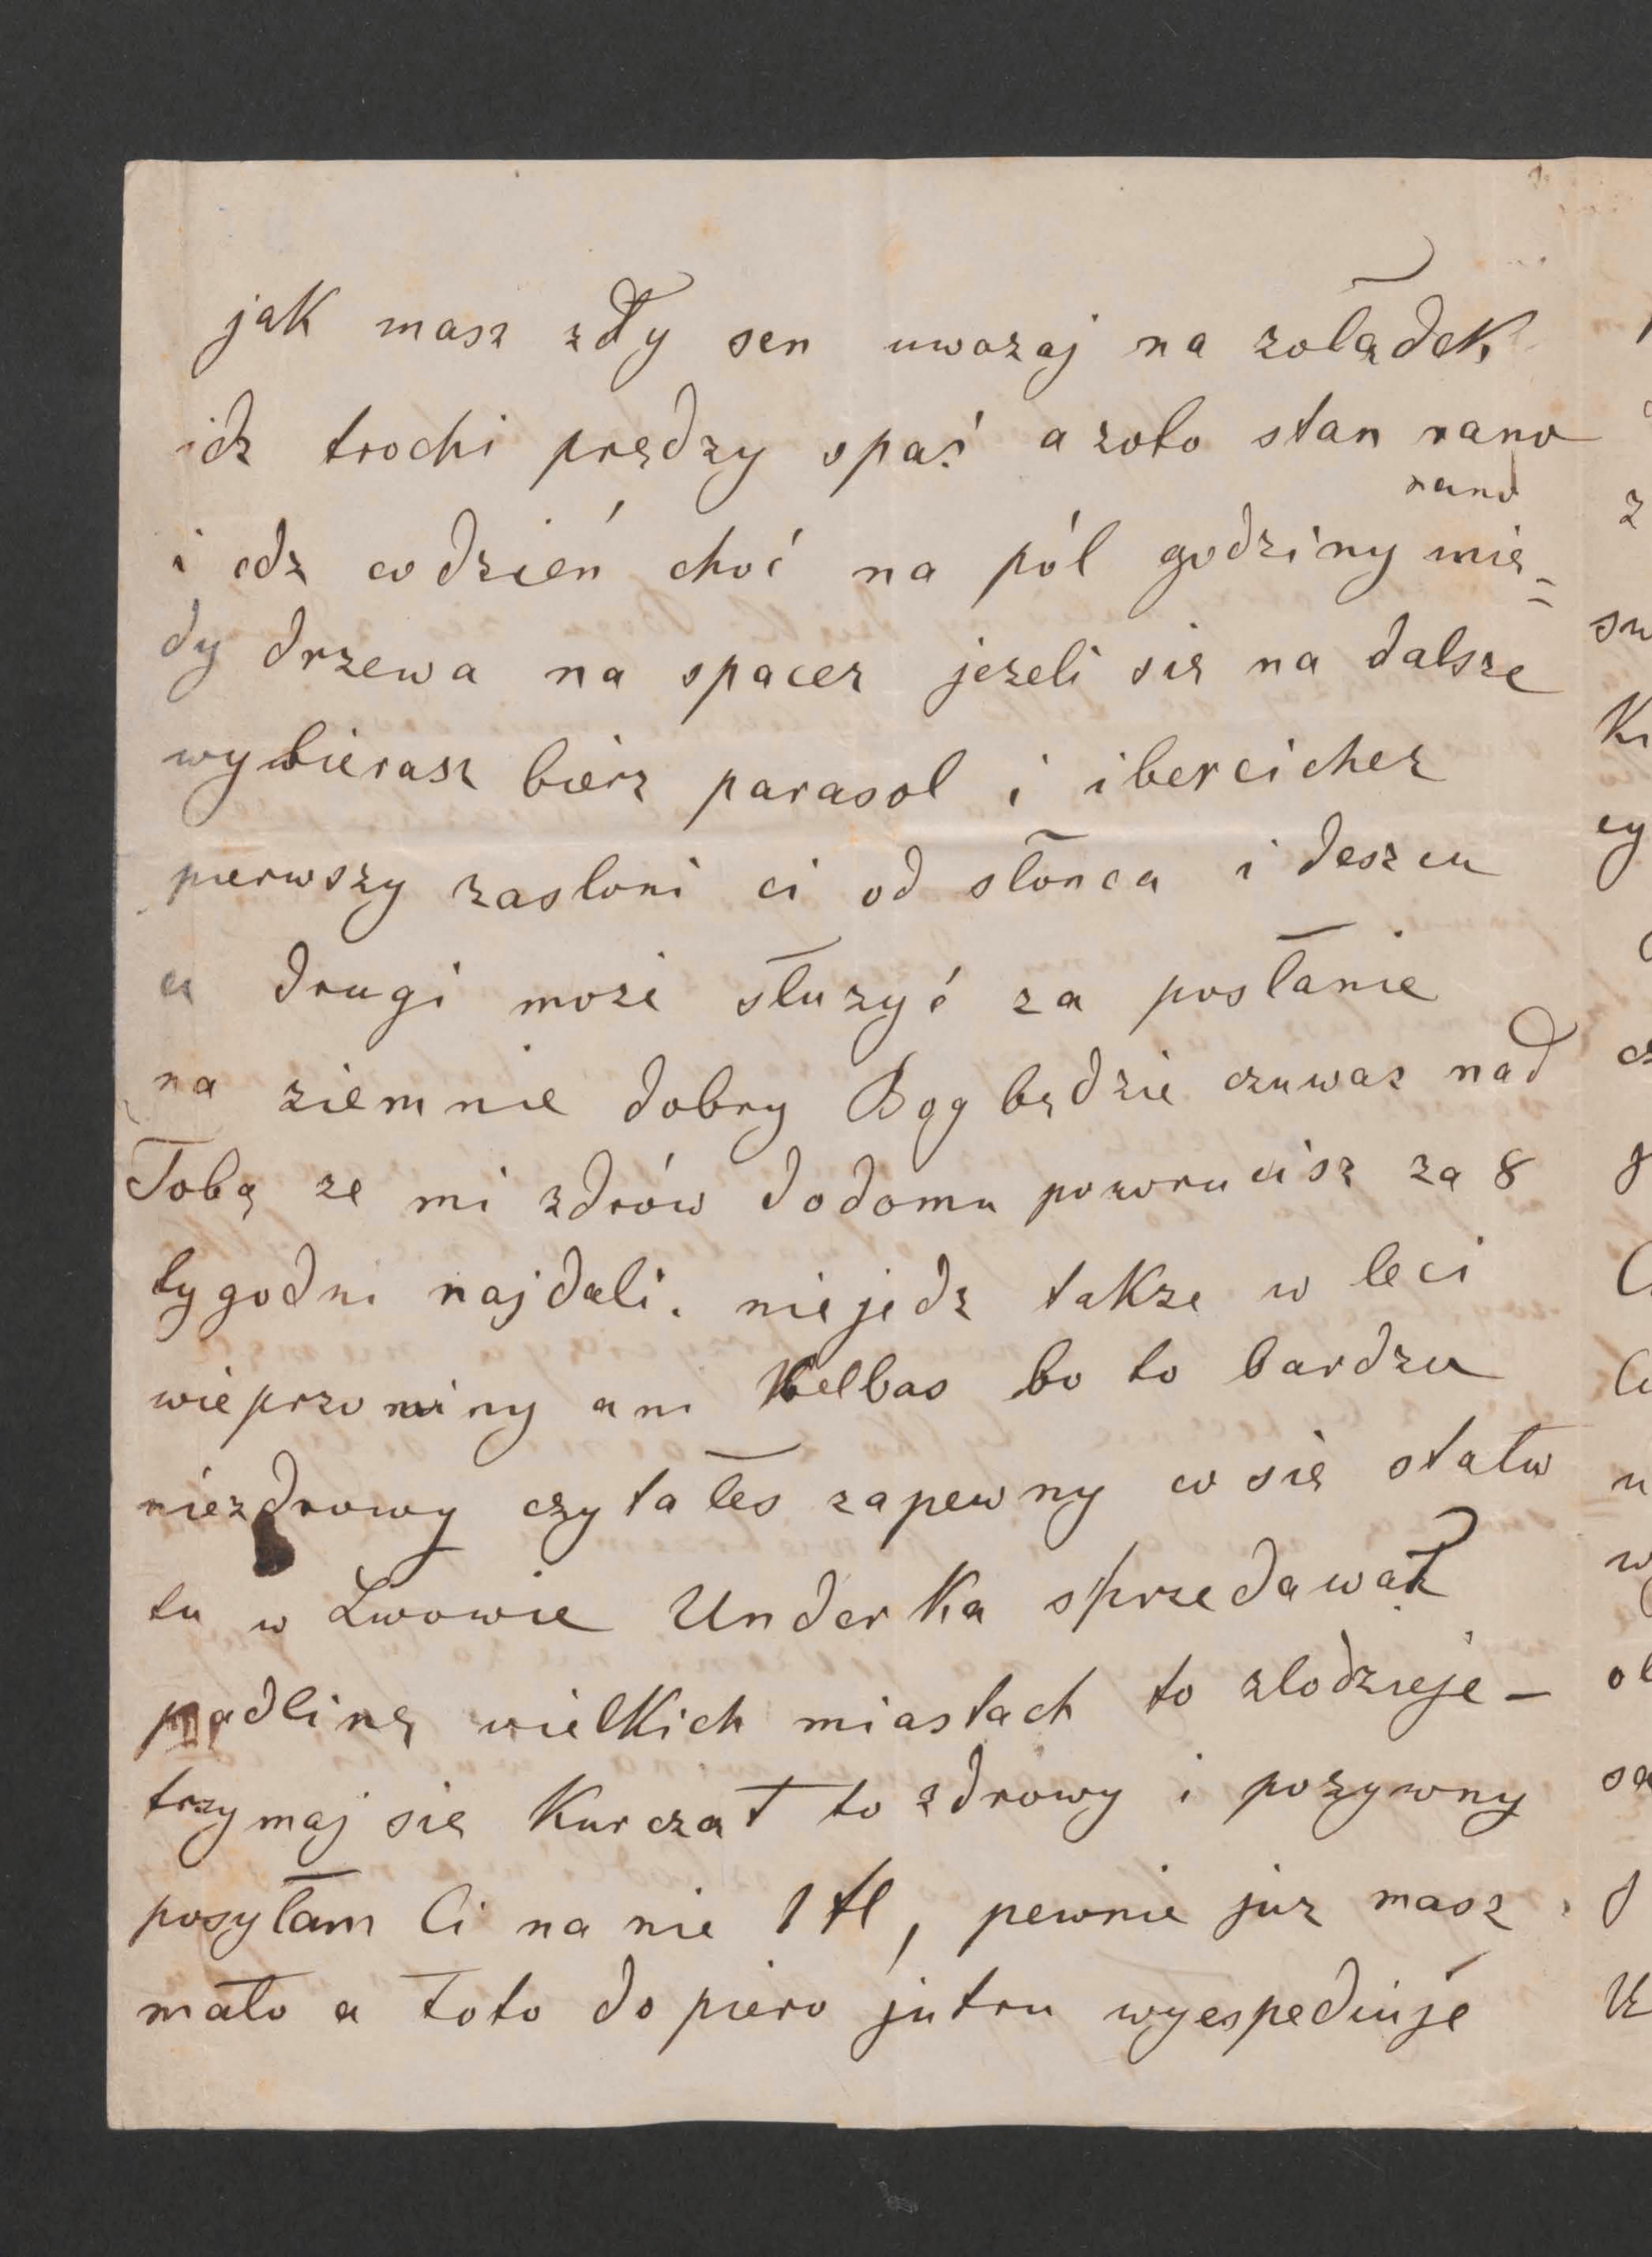 jak masz zły sen uwazaj na zołądek
idz trochi prędzy spać a zoto stan rano
rano
i idz codzień choć na pól godziny mię=
dy drzewa na spacer jezeli się na dalsze
wybierasz bierz parasol i ibercicher
pierwszy zasloni ci od słonca i deszcu
a drugi może słuzyć za posłanie
na ziemnie dobry Bog będzie czuwaz nad
Tobą ze mi zdrów dodomu powrucisz za 8
tygodni najdali. niejedz takze w leci
wieprzowiny ani Kelbas bo to bardzu
niezdrowy czytałes zapewny co się stało
tu w Lwowie Underka sprzedawał
padlinę wielkich miastach to zlodzieje –
trzymaj się Kurczat to zdrowy i pozywny
posyłam Ci na nie 1 fl, pewnie juz masz
mało a toto dopiero jutru wyespediuje